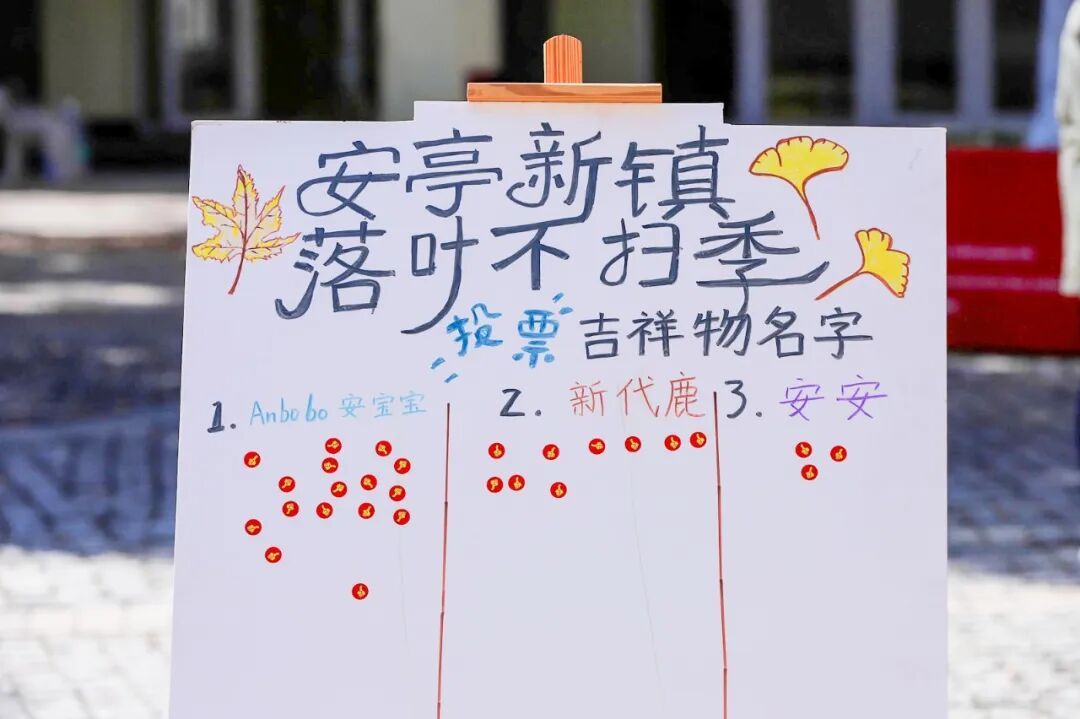 安亭新镇
落叶不扫季
投票 吉祥物名字
1. Anbobo 安宝宝 2. 新代鹿 3. 安安